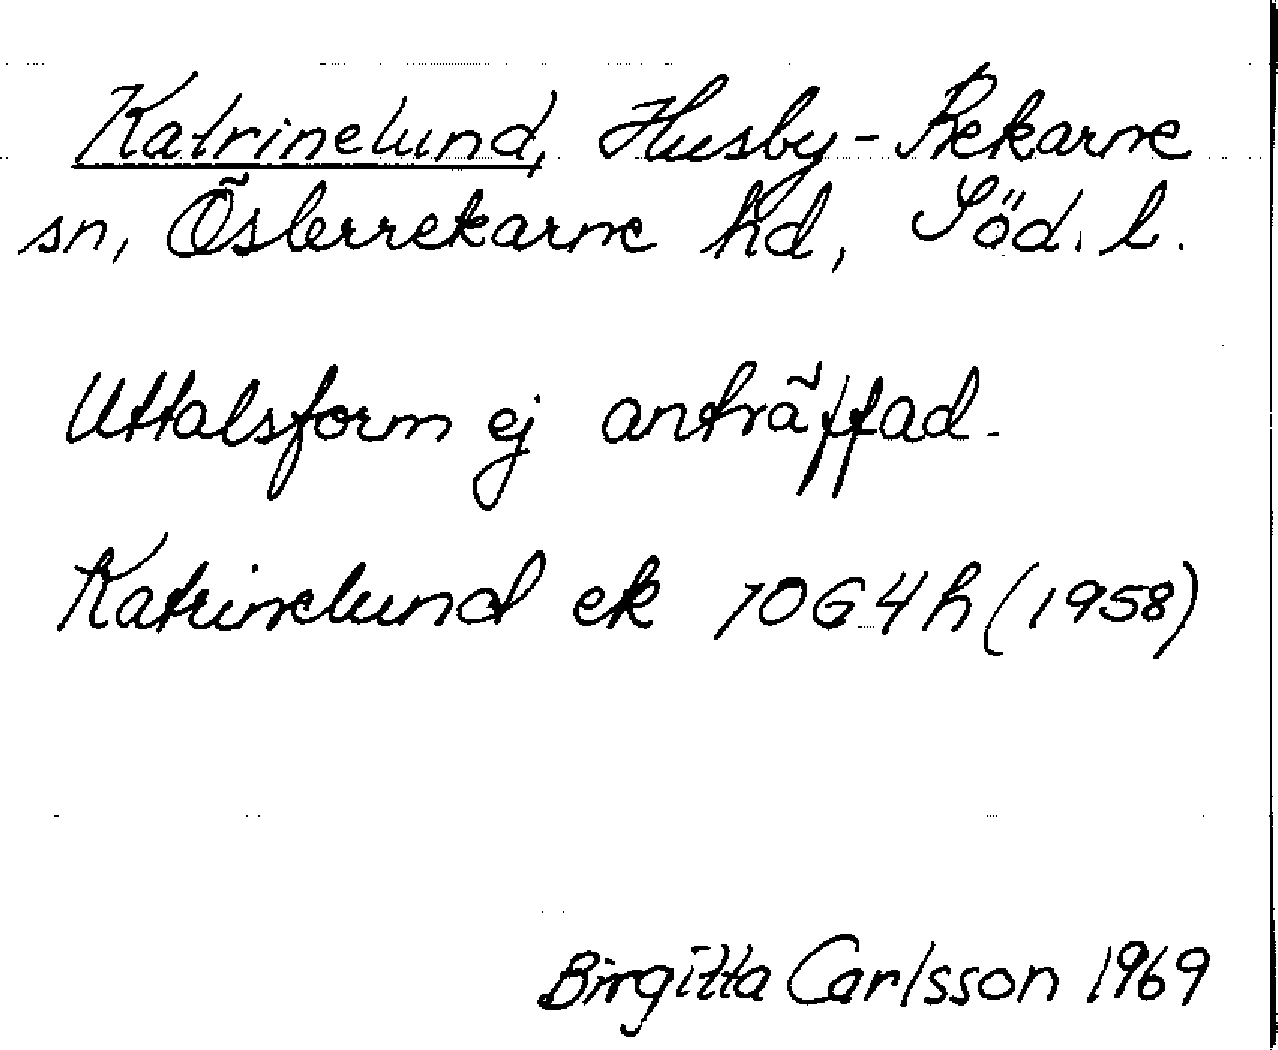 Katrinelund, Husby-Rekarne
sn, Österrekarne hd, Söd. l.
Uttalsform ej anträffad.
Katrinelund ek 10G4h (1958)
Birgitta Carlsson 1969